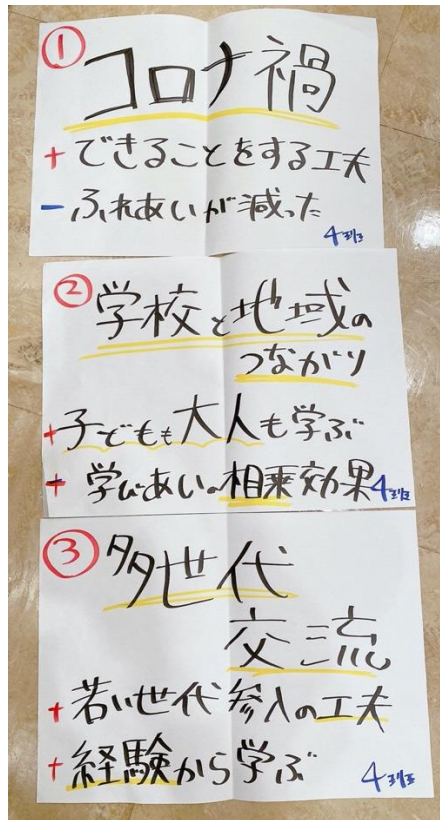 ① コロナ禍
+ できることをする工夫
- ふれあいが減った
4班
② 学校と地域の
つながり
+ 子どもも大人も学ぶ
+ 学びあいの相乗効果 4班
③ 多世代
交流
+ 若い世代参入の工夫
+ 経験から学ぶ
4班